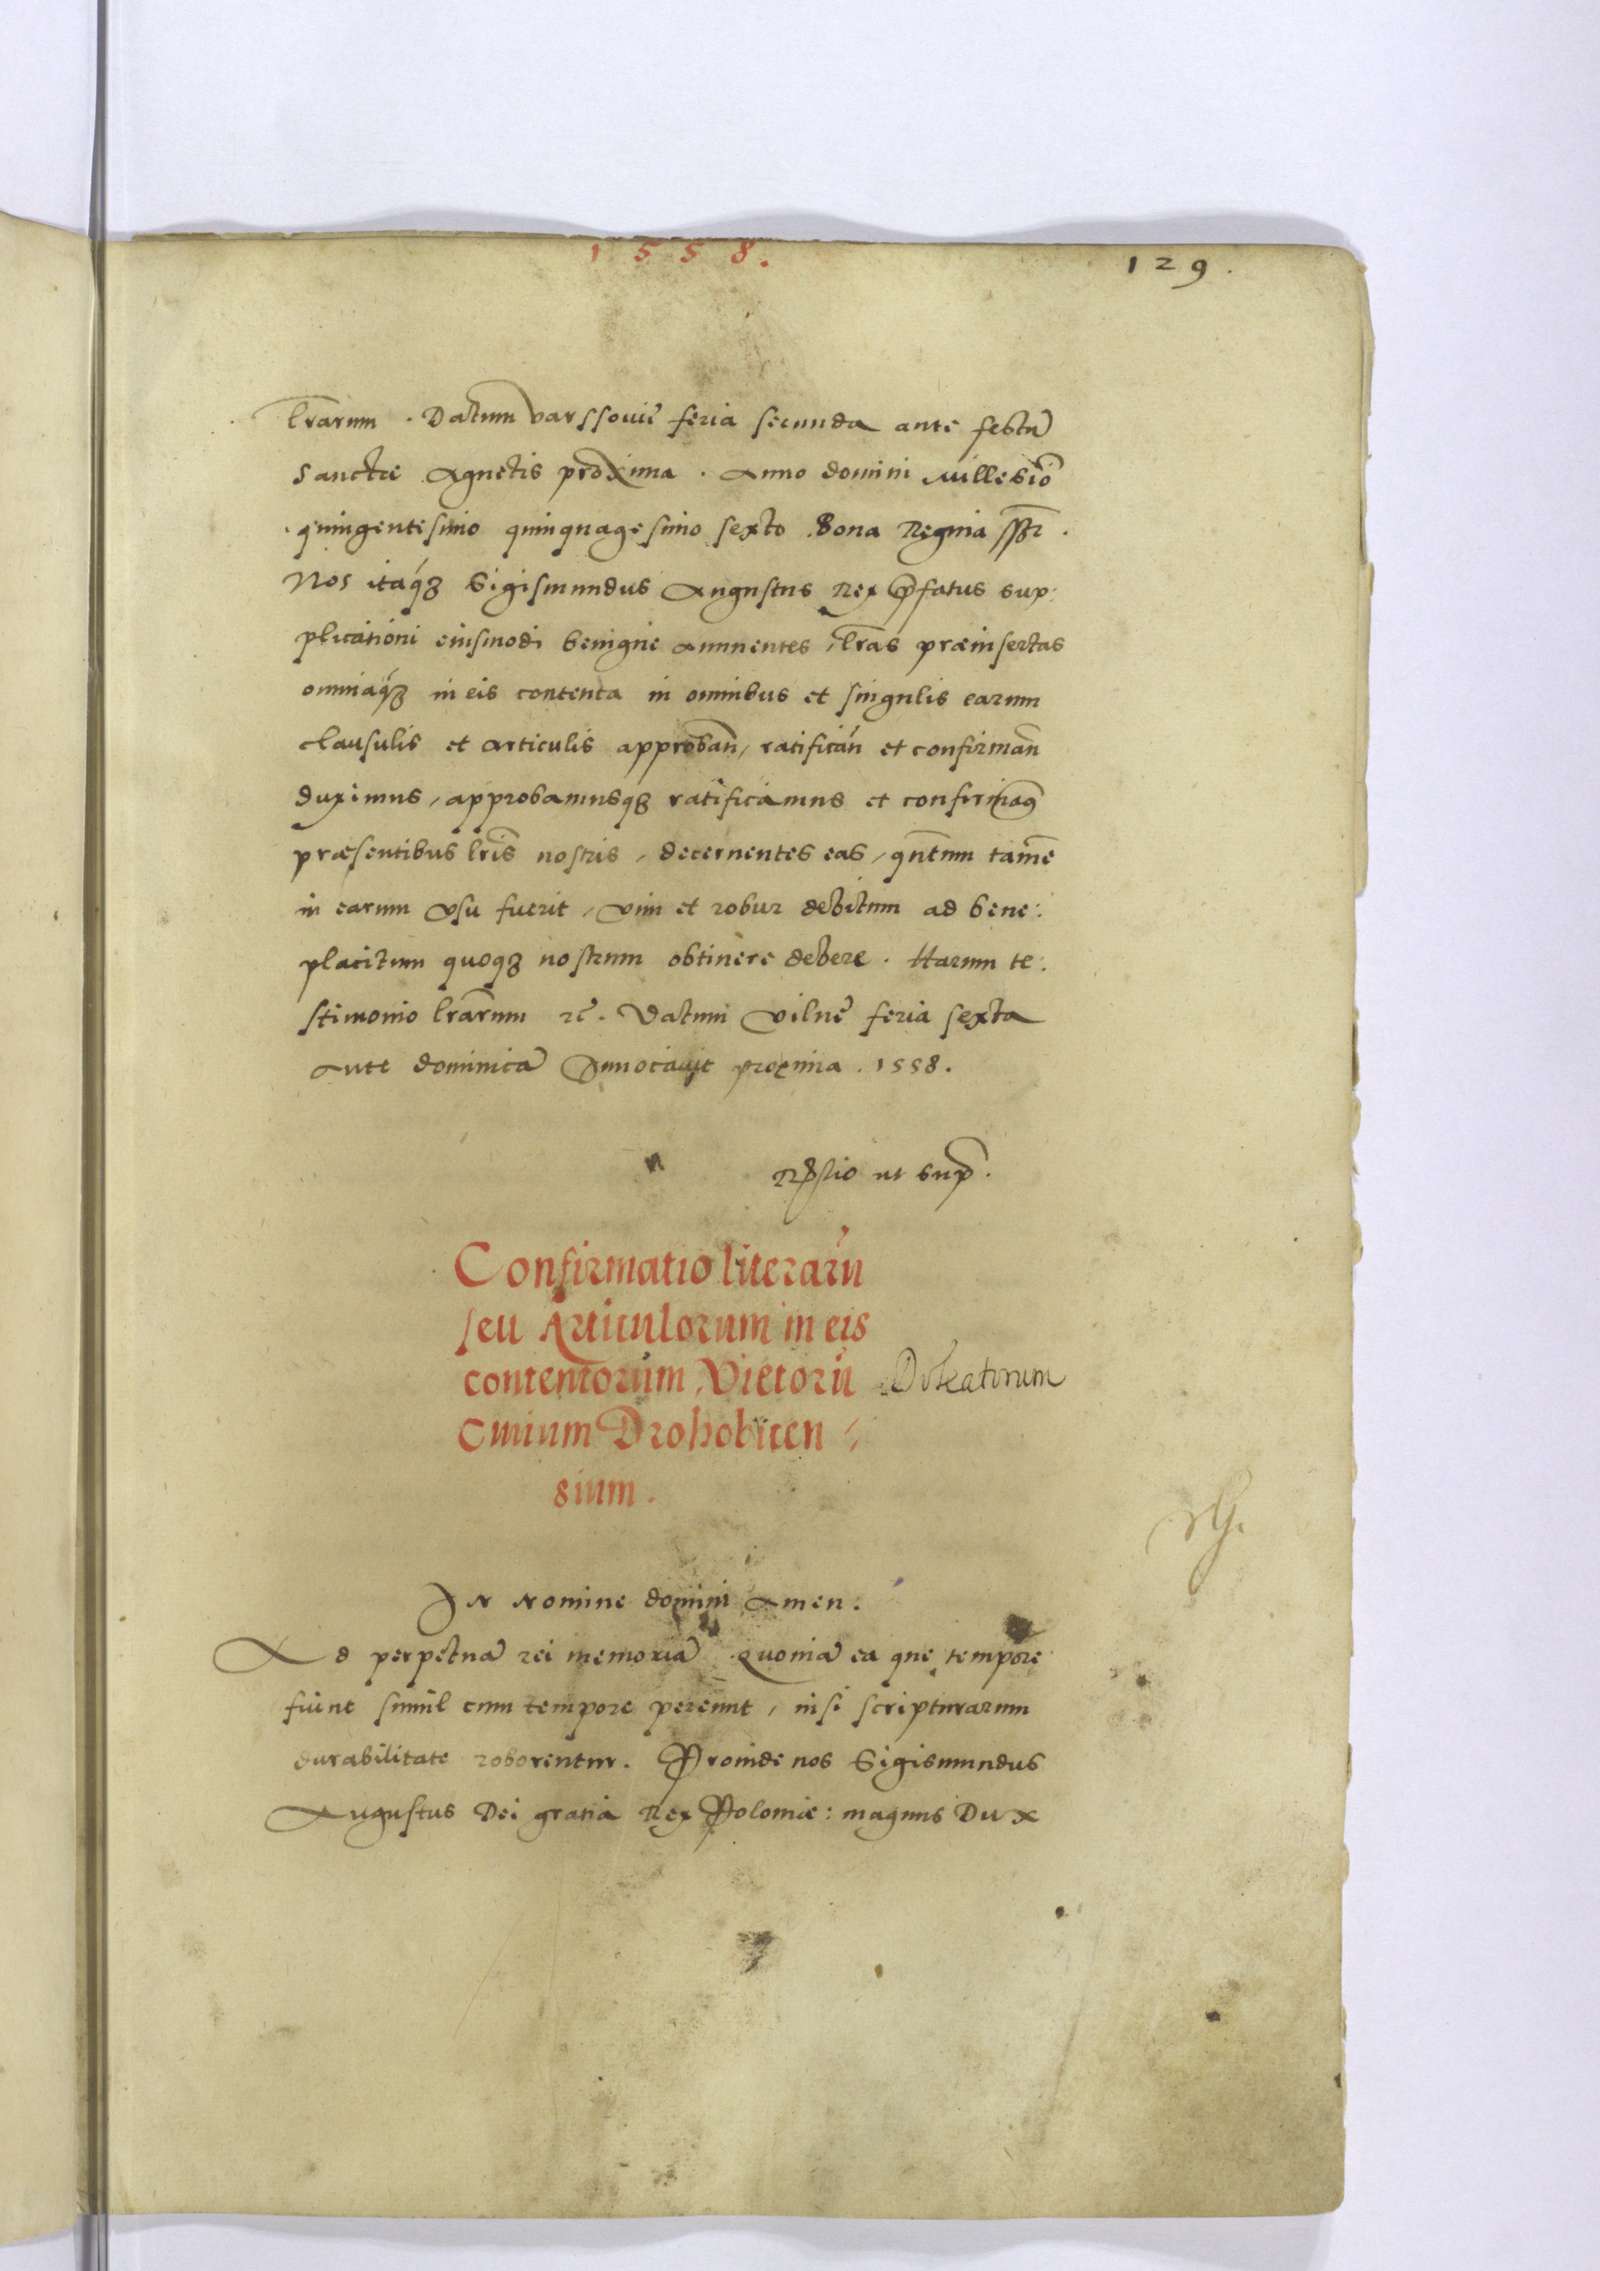 1558.
129.
lr̄arum. Datum varssouie feria secunda ante festū
Sanctæ Agnetis proxima. Anno domini Millesīo
quingentesimo quinquagesimo sexto Bona Regina
Nos itaq́ꝫ Sigismundus Augustus Rex p̄fatus sup:
plicationi eiusmodi benigne annuentes, lr̄as præinsertas
omniaq́ꝫ in eis contenta in omnibus et singulis earum
clausulis et articulis approbań, ratificań et confirmań
duximus, approbamusqꝫ ratificamus et confirmamꝰ
præsentibus lr̄is nostris, decernentes eas, qn̄tum tamē
in earum vsu fuerit, vim et robur debitum ad bene:
placitum quoqꝫ nostrum obtinere debere. Harum te:
stimonio lr̄arum rc̄. Datum vilnē feria sexta
ante dominicā Inuocauit proxima. 1558.
ut sup̄.
Confirmatio literarū
seu Articulorum in eis
contentorum, Vietorū
Ciuium Drohobicen,
sium.
Doleatorum
In Nomine domini Amen.
Ad perpetuā rei memoriā Quoniā ea que tempore
fiunt simul cum tempore pereunt, nisi scripturarum
durabilitate roborentur. Proinde nos Sigismundus
Augustus Dei gratia Rex Poloniæ: magnus Dux